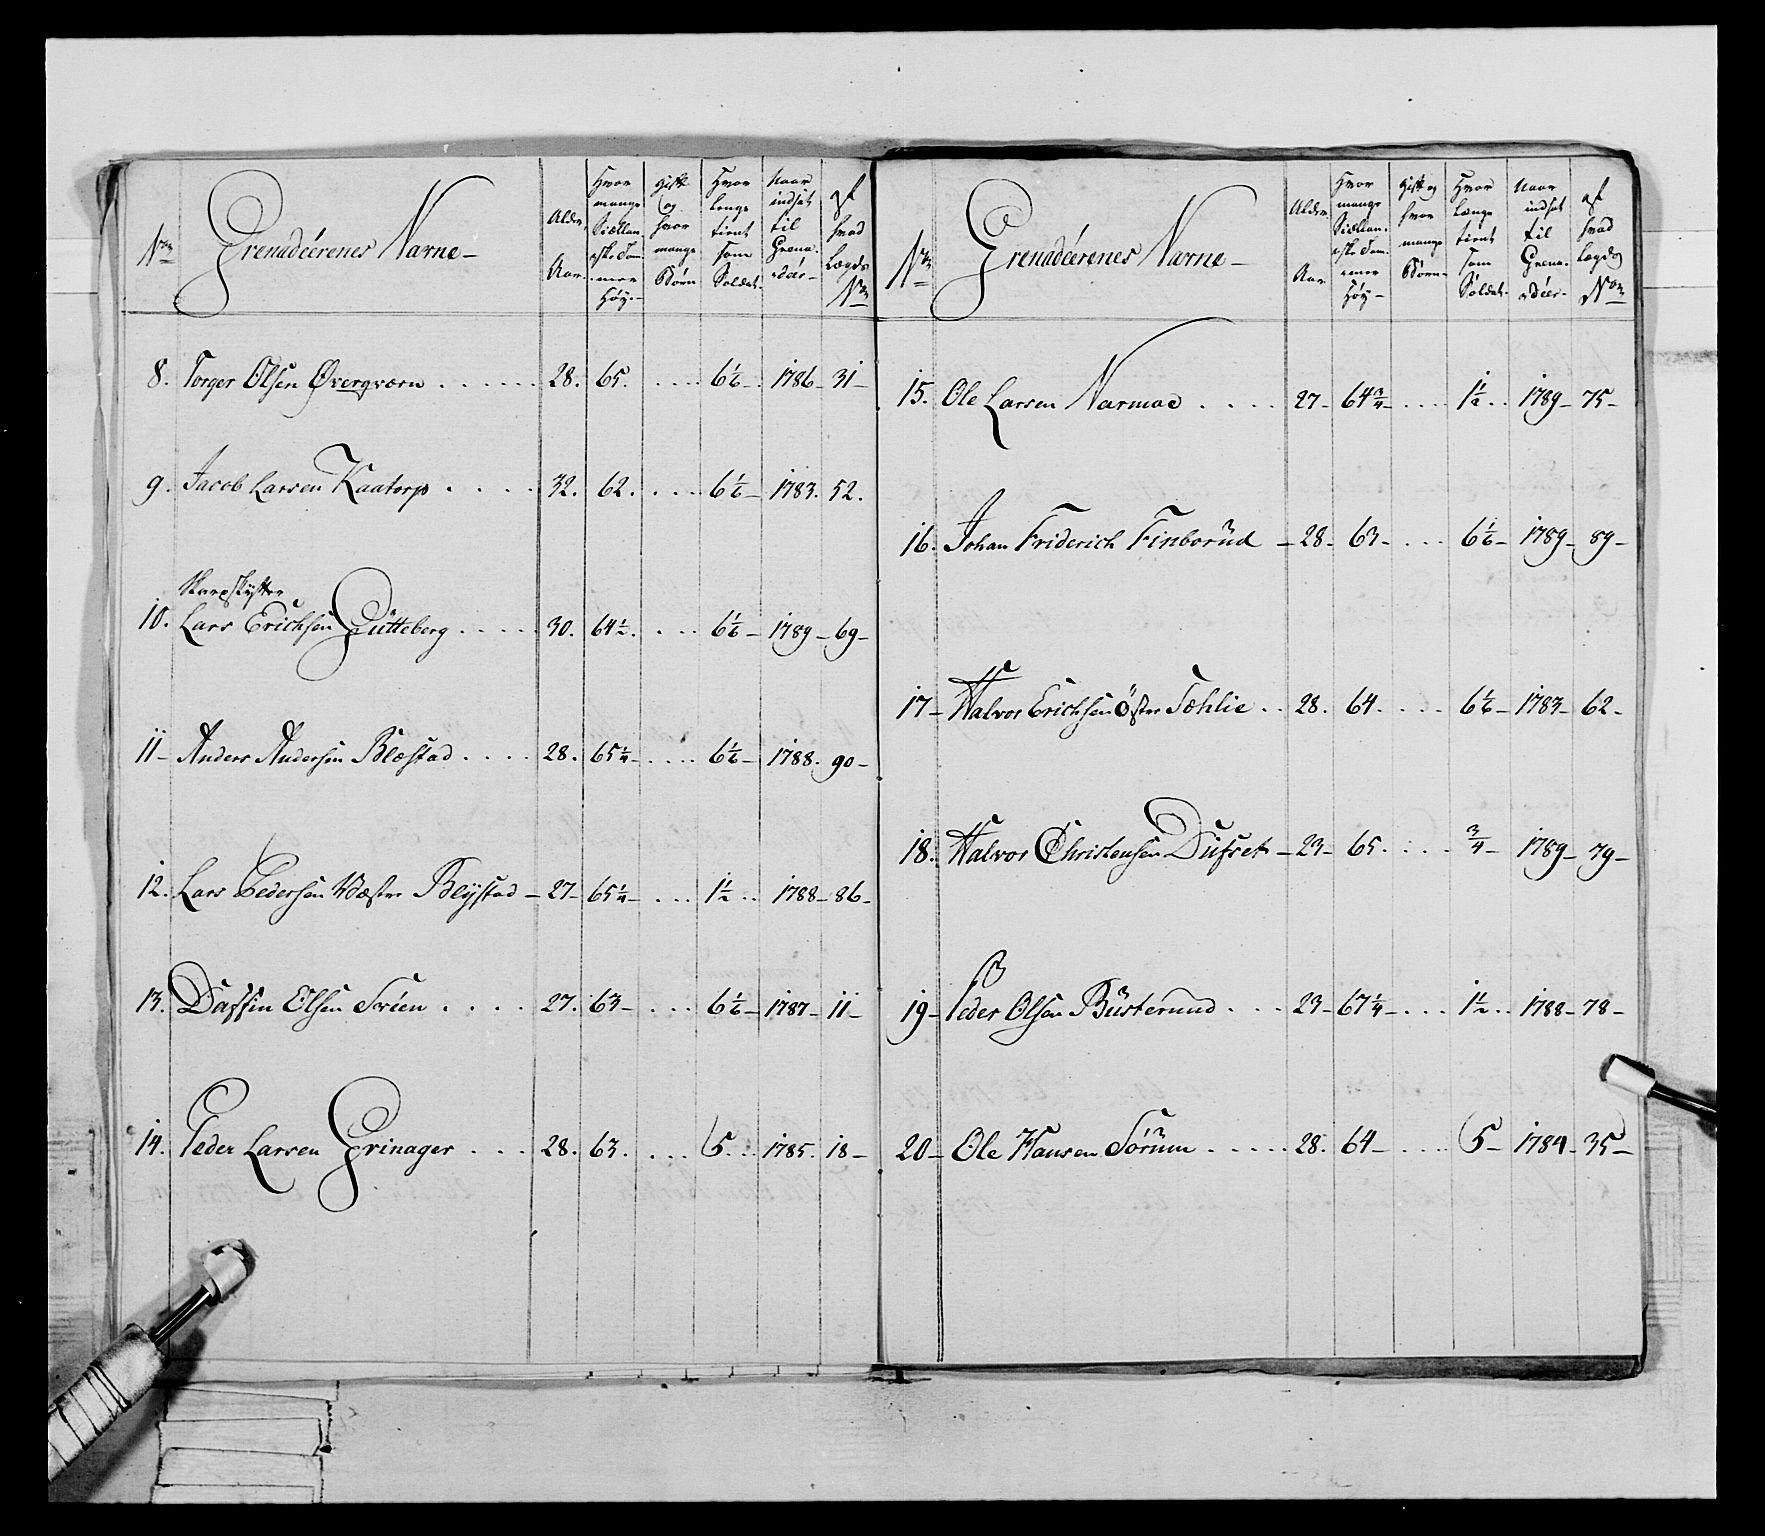 No Grenadéerenes Navne – Alder Aar Hvor mange Siællandske Tommer Høy – Gift og hvor mange Børn Hvor lenge tient som Soldat Naar indsat til Grenadéer – Af hvad Lægds No
8. Torger Olsen Øvergværn . . . . . . 28. 65. . . . . 6 1/6 – 1786 – 31 –
9. Jacob Larsen Kaatorp . . . . 32. 62. . . . 6 1/6 – 1783. 52.
Skarpskytter
10. Lars Erichsen Gütteberg . . . . . 30. 64 1/2. . . . 6 1/6 – 1789 – 69 –
11 – Anders Andersen Blæstad . . . . 28. 65 1/4 – . . . . 6 1/6 – 1788. 90 –
12. Lars Pedersen Væster Blÿstad – 27 – 65 1/4 – . . . 1 1/2 . . 1788 – 86 –
13. Daffin Olsen Sorien . . . . 27. 63 – . . . 6 1/6 – 1787 – 11 –
14. Peder Larsen Grinager . . . 28. 63. . . . 5. . . 1785. 18 –
No Grenadéerenes Navne – Alder Aar Hvor mange Siællandske Tommer Høy – Gift og hvor mange Børn – Hvor længe tient som Soldat. Naar indsat til Grenadéer – af hvad Lægds No
15. Ole Larsen Narmoe . . . . 27 – 64 3/4 – . . . . 1 1/2 . . 1789 – 75 –
16. Johan Friderich Finborüd – 28 – 63 – . . . 6 1/6 – 1789 – 89 –
17 – Halvor Erichsen Öster Sæhlie . . 28. 64. . . . 6 1/6 – 1783 – 62 –
18. Halvor Christensen Dufset – 23 – 65. . . . 3/4 – 1789 – 79 –
19 – Peder Olsen Büsterund . . . 23 – 67 1/4 – . . . 1 1/2 . . 1788 – 78 –
20 – Ole Hansen Sörüm . . . . . 28. 64 – . . . 5 – 1784 – 35 –